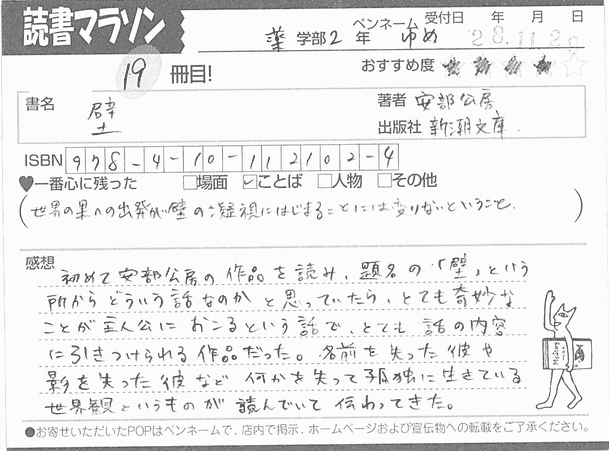 読書マラソン
薬 学部 2 年 ペンネーム ゆめ 受付日 年 月 日
28.11.2
19 冊目!
おすすめ度 ★★★★☆
書名 壁
著者 安部公房
出版社 新潮文庫.
ISBN 978-4-10-112102-4
♥一番心に残った □場面 ☑ことば □人物 □その他
(世界の果への出発が壁の凝視にはじまることには変りないということ.)
感想
初めて安部公房の作品を読み、題名の「壁」という
所からどういう話なのかと思っていたら、とても奇妙な
ことが主人公におこるという話で、とても話の内容
に引きつけられる作品だった。名前を失った彼や
影を失った彼など何かを失って孤独に生きている
世界観というものが読んでいて伝わってきた。
●お寄せいただいたPOPはペンネームで、店内で掲示、ホームページおよび宣伝物への転載をご了承ください。